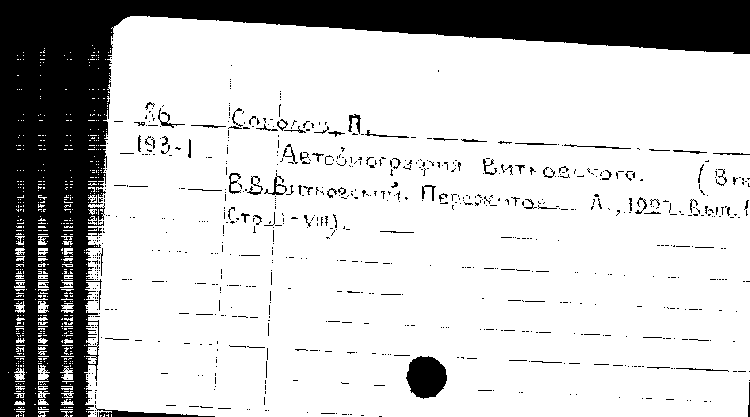 Я6 Соколов, П.
193-1 Автобиография Витковского. (В кн
В.В.Витковский. Пережитое. Л., 1927. Вып. 1
Стр. I-VIII).